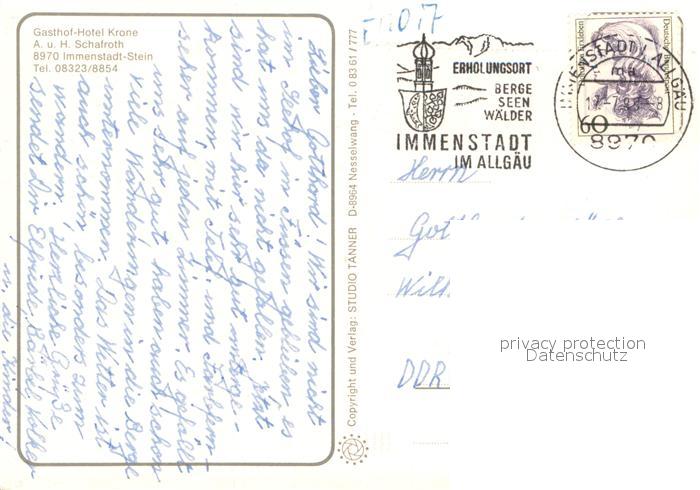 Gasthof-Hotel Krone
A. u. H. Schafroth
8970 Immenstadt-Stein
Tel. 08323/8854
Lieber Gotthard! Wir sind nicht
im Seehof in Füssen geblieben es
hat uns da nicht gefallen. Jetzt
sind wir hier sehr gut unterge-
kommen, mit Tel. und Farbfern-
seher auf jedem Zimmer. Es gefällt
uns sehr gut haben auch schon
viele Wanderungen in die Berge
unternommen. Das Wetter ist
auch schön, besonders zum
wandern. Herzliche Grüße
sendet dir Elfriede, Bärbel
u. die Kinder!
Copyright und Verlag: STUDIO TANNER D-8964 Nesselwang - Tel. 0 83 61 / 777
ERHOLUNGSORT
BERGE
SEEN
WÄLDER
IMMENSTADT
IM ALLGÄU
IMMENSTADT I. ALLGÄU
8970
Deutsche Bundespost
60
Herrn
DDR
privacy protection
Datenschutz